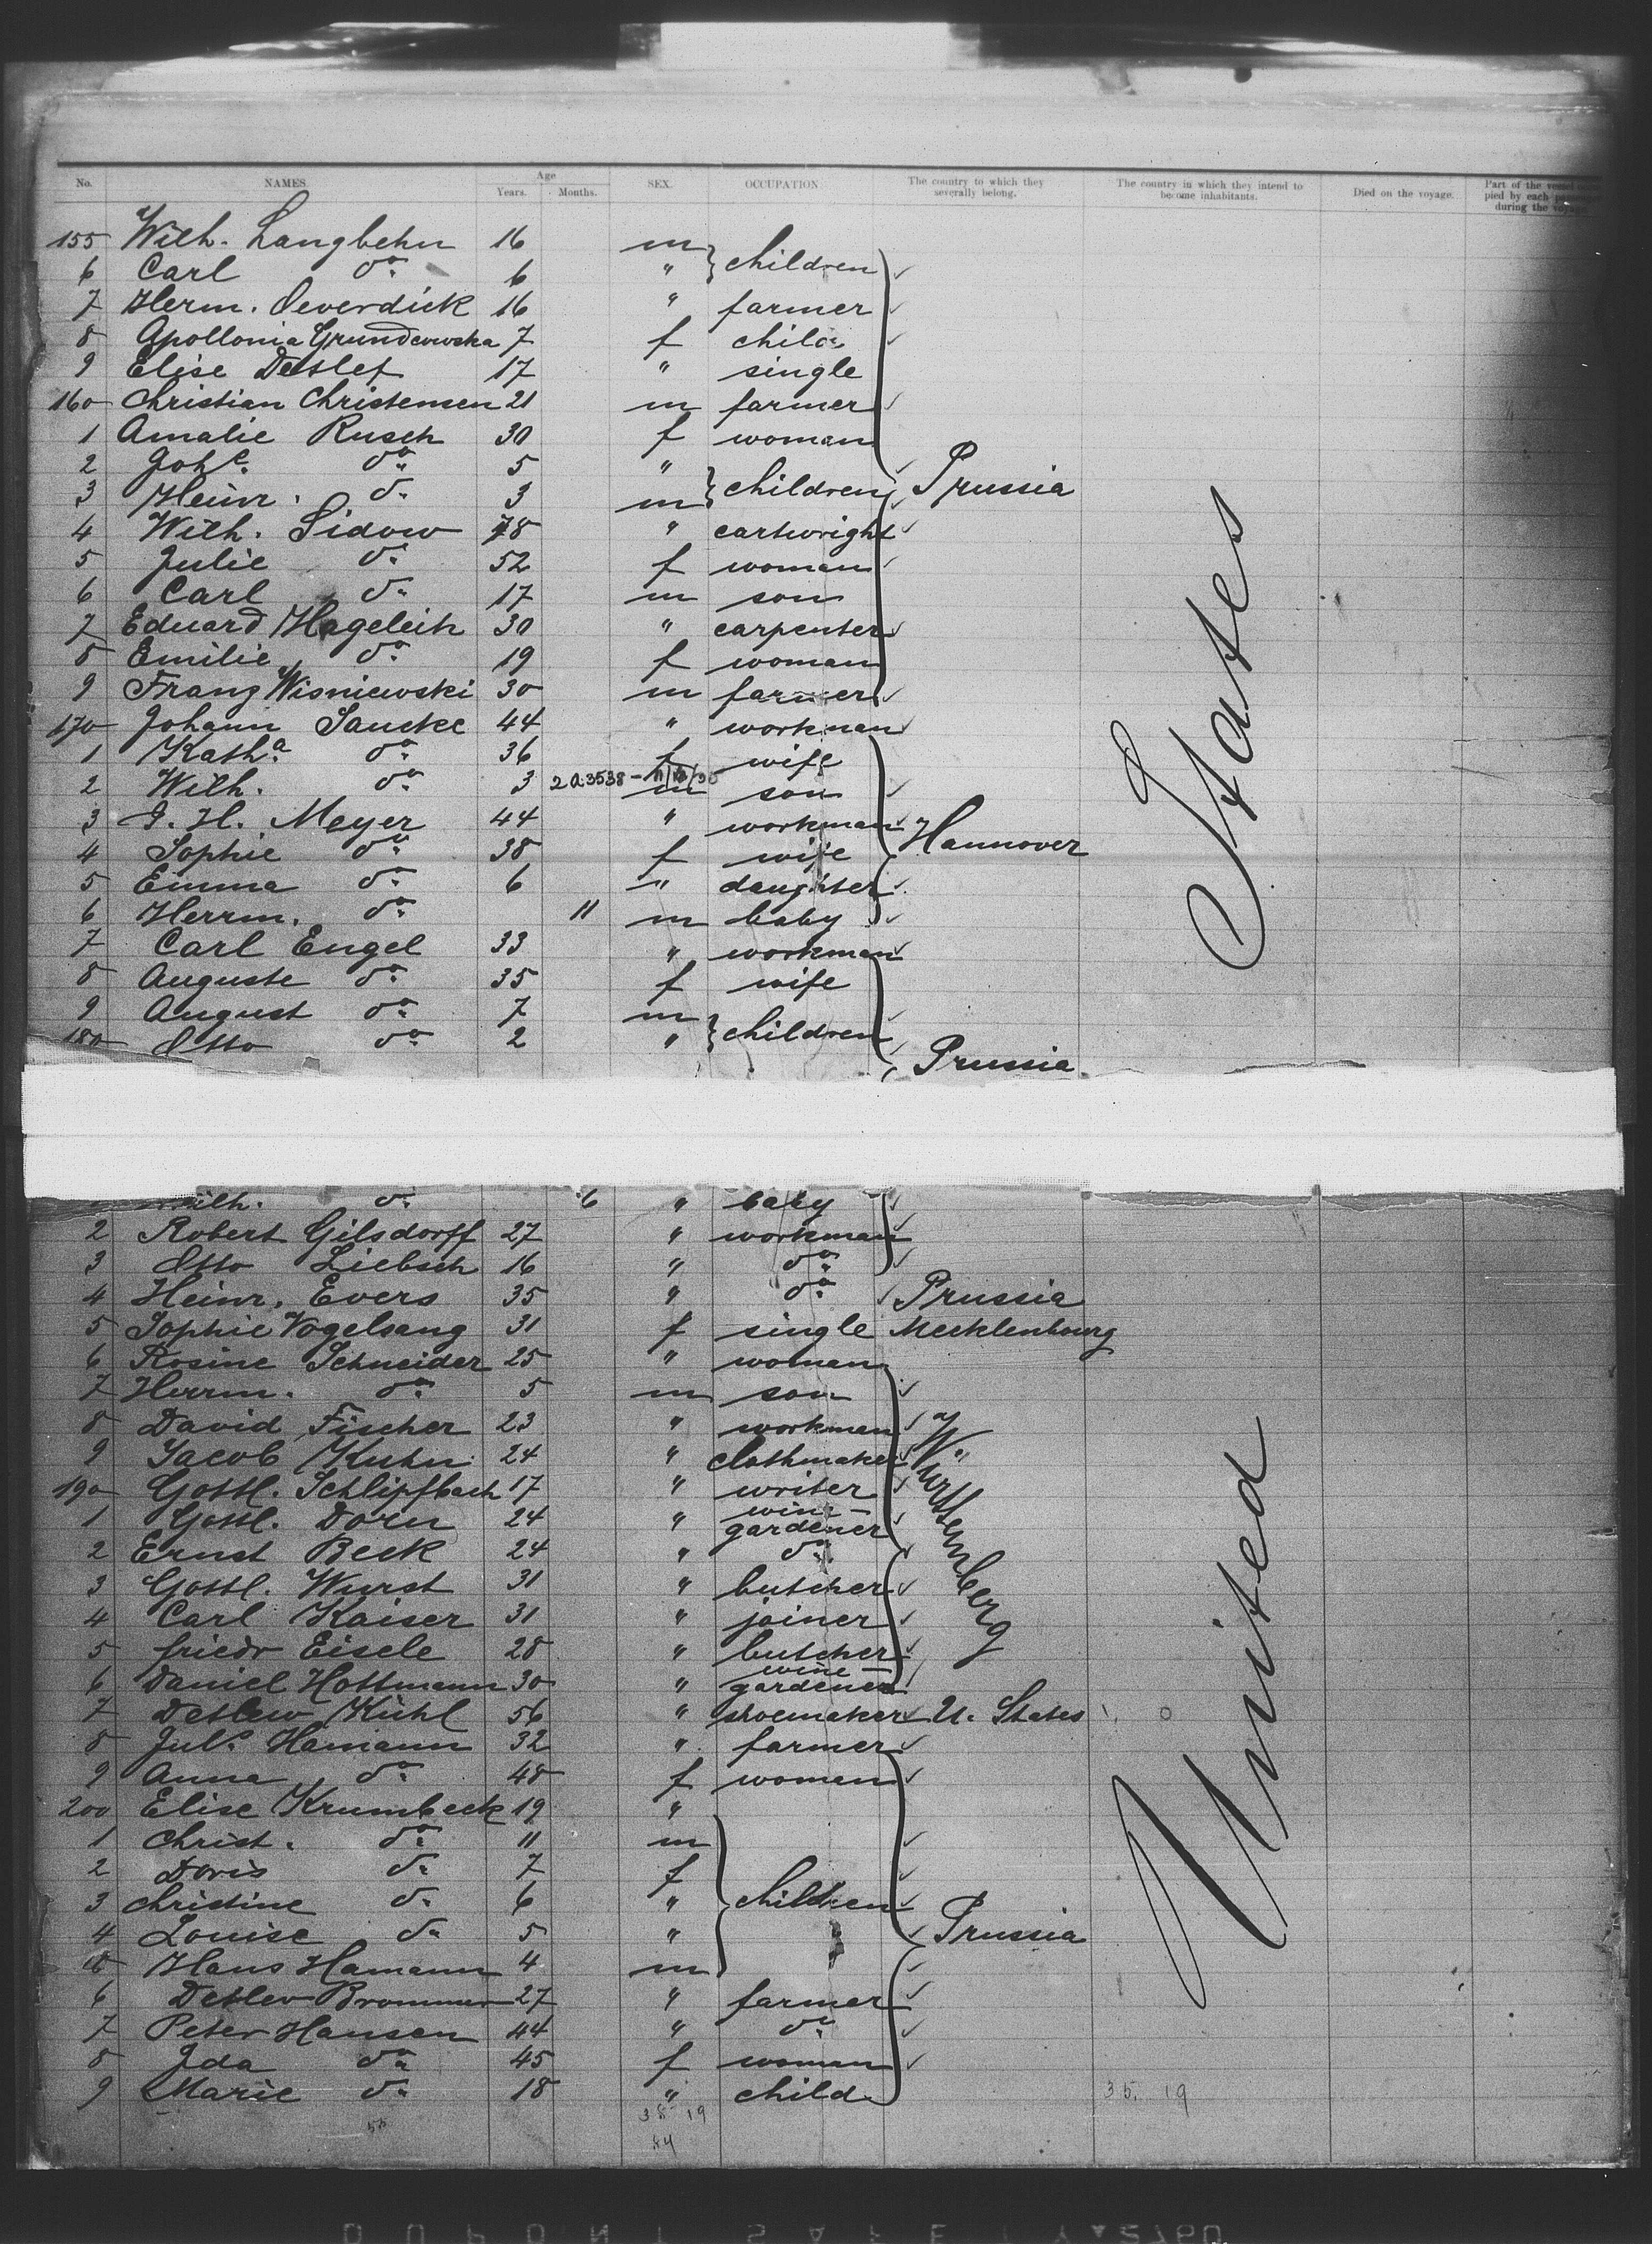 No. NAMES. Age Years. Months. SEX. OCCUPATION The country to which they severally belong. The country in which they intend to become inhabitants. Died on the voyage. Part of the vessel pied by each during the voyage
155 Wilh. Langbehn 16 m children
6 Carl do. 6 "
7 Herm. Severdick 16 " farmer
8 Apollonia 7 f child
9 Elise Detlef 17 " single
160 Christian Christensen 21 m farmer
1 Amalie Rusch 30 f woman
2 Johe. do. 5 " children Prussia
3 Heinr. do. 3 m
4 Wilh. Sidow 78 " cartwright
5 Julie do. 52 f woman
6 Carl do. 17 m son
7 Eduard Hageleih 30 " carpenter
8 Emilie do. 19 f woman
9 Franz Wisniewski 30 m farmer
170 Johann Saucke 44 " workman
1 Katha. do. 36 f wife
2 Wilh. do. 3 2a3538- m son
3 J. H. Meyer 44 " workman Hannover
4 Sophie do. 38 f wife
5 Emma do. 6 " daughter
6 Herrm. do. 11 m baby
7 Carl Engel 33 " workman
8 Auguste do. 35 f wife
9 August do. 7 m children
180 Otto do. 2 "
Prussia
Wilh. do. 6 " baby
2 Robert Gilsdorff 27 " workman
3 Otto Liebsch 16 " do.
4 Heinr. Evers 35 " do. Prussia
5 Sophie Vogelsang 31 f single Mecklenbourg
6 Rosine Schneider 25 " woman
7 Herrm. do. 5 m son
8 David Fischer 23 " workman
9 Jacob Kuhn 24 " clothmaker Wurttemberg
190 Gottl. Schlipfbach 17 " writer
1 Gottl. Dorn 24 " wine-gardener
2 Ernst Beck 24 " do.
3 Gottl. Wurst 31 " butcher
4 Carl Kaiser 31 " joiner
5 friedr Eisele 28 " butcher
6 Daniel Hottmann 30 " wine-gardener
7 Detlew Kühl 56 " shoemaker U. States
8 Juls. Hamann 32 " farmer
9 Anna do. 48 f woman
200 Elise Krumbeck 19 "
1 Christ. do. 11 m
2 Doris do. 7 f
3 Christine do. 6 " children
4 Louise do. 5 " Prussia
5 Hans Hamann 4 m
6 Detlev Brommer 27 " farmer
7 Peter Hansen 44 " do.
8 Ida do. 45 f woman
9 Marie do. 18 " child
35. 19
38 19
84
United States
DUPONT SAFETY 2760